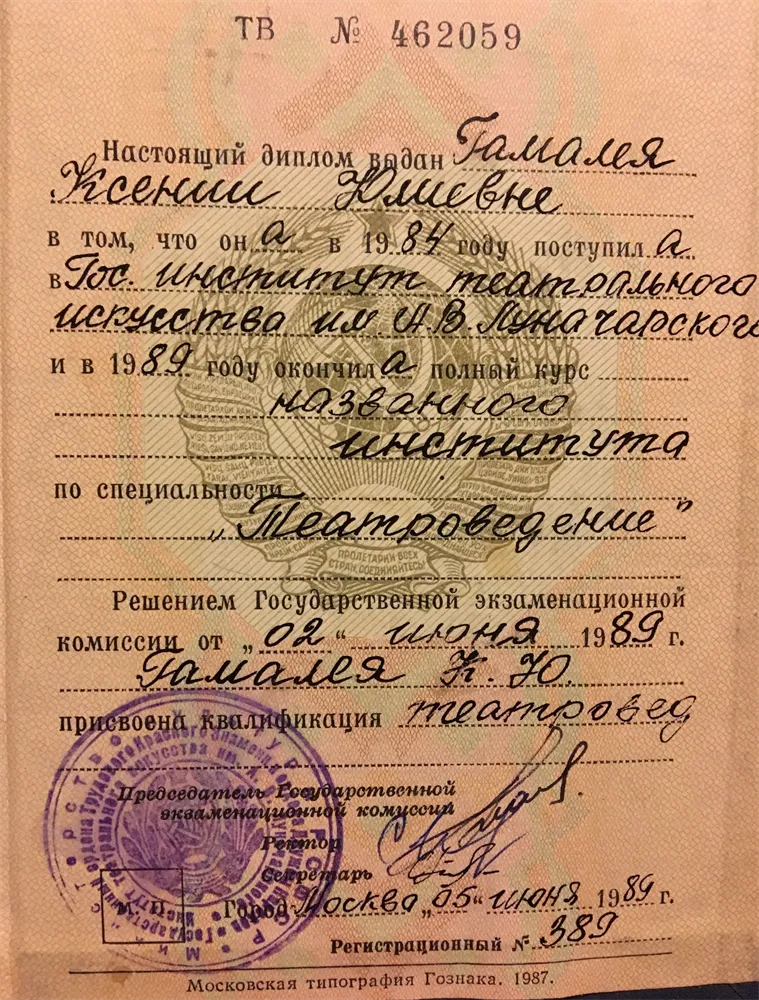 ТВ № 462059
Настоящий диплом выдан Гамалея
Ксении Юлиевне
в том, что он а в 1984 году поступил а
в Гос. институт театрального
искусства им. А.В. Луначарского
и в 1989 году окончил а полный курс
названного
института
по специальности
„Театроведение"
ПРОЛЕТАРИИ ВСЕХ
СТРАН, СОЕДИНЯЙТЕСЬ!
Решением Государственной экзаменационной
комиссии от „02“ июня 1989 г.
Гамалея К. Ю.
присвоена квалификация театровед
Председатель Государственной
экзаменационной комиссии
Ректор
Секретарь
М. П. Город Москва „05“ июня 1989 г.
Регистрационный № 389
Московская типография Гознака. 1987.